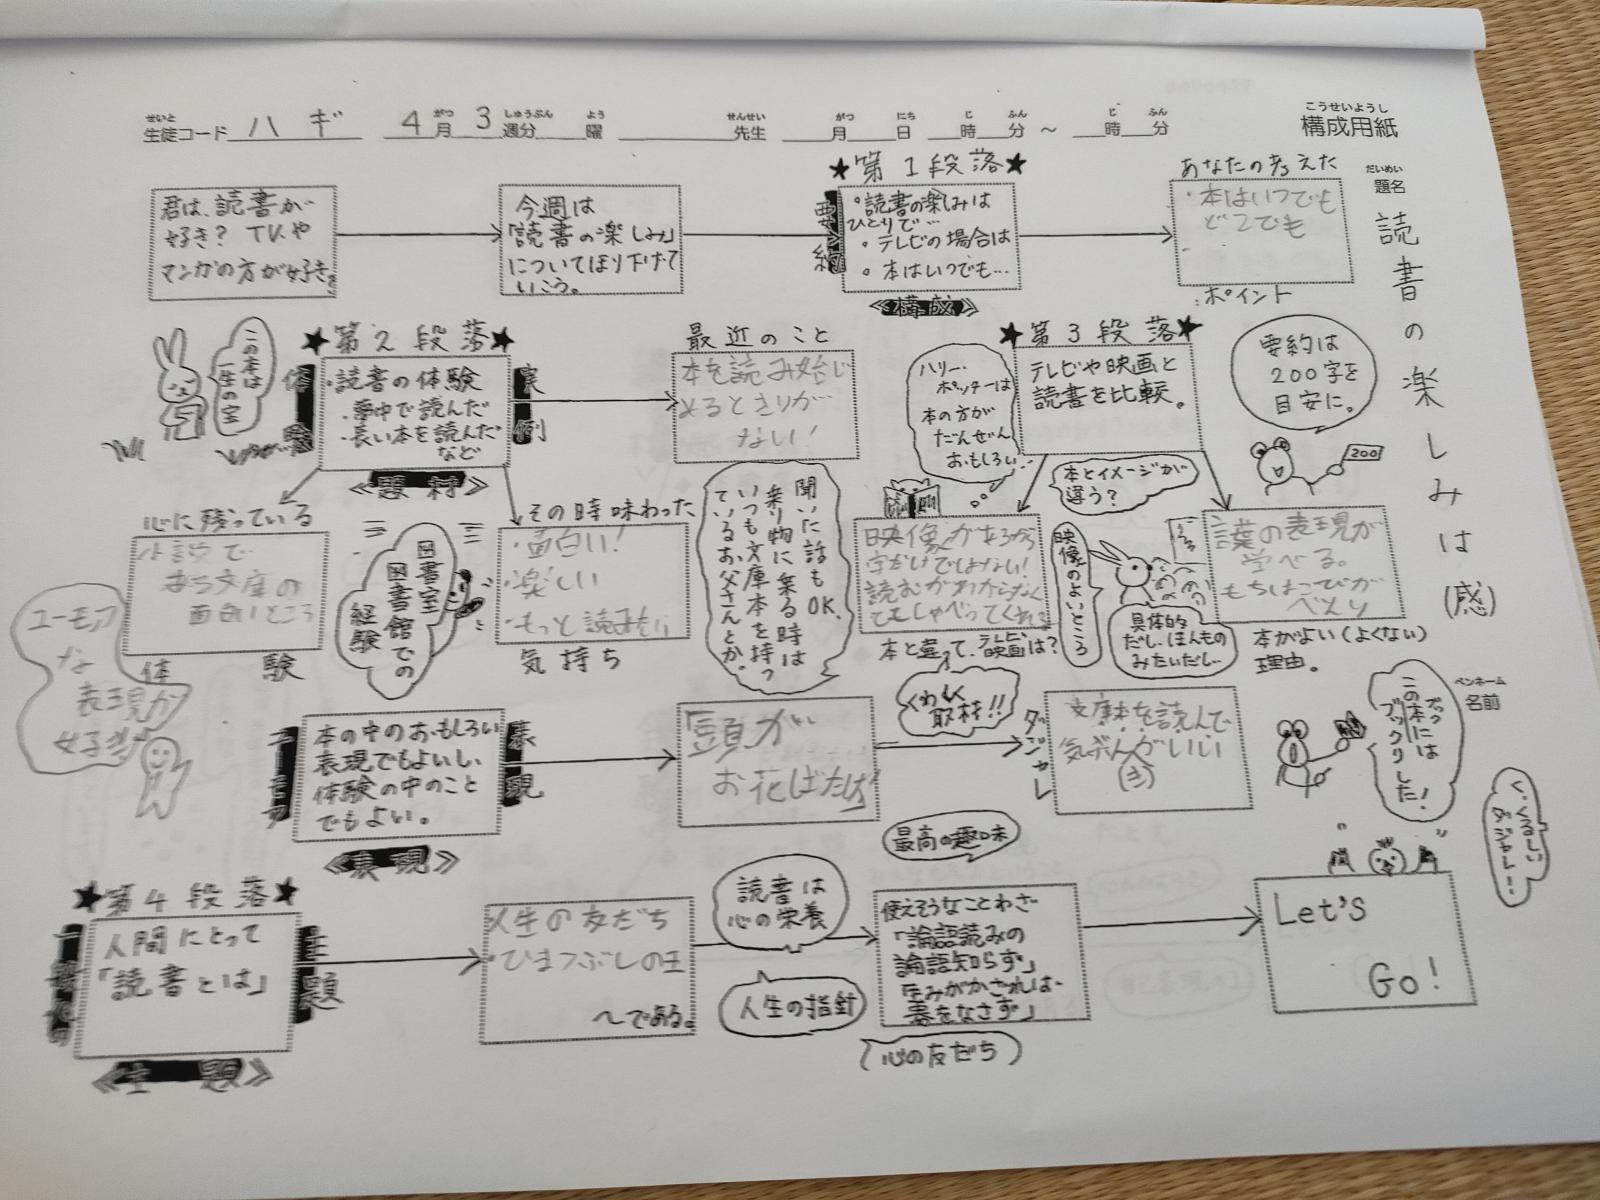 こうせいようし
構成用紙
せいと がつ しゅうぶん よう せんせい がつ にち じ ふん じ ふん
生徒コード ハギ 4月3週分 曜 先生 月 日 時 分 ～ 時 分
だいめい
題名
読書の楽しみは(感)
ペンネーム
名前
君は、読書が
好き? TVや
マンガの方が好き。
今週は
「読書の楽しみ」
についてほり下げて
いこう。
★第1段落★
要約
・読書の楽しみは
ひとりで…
・テレビの場合は
・本はいつでも…
《構成》
あなたの考えた
・本はいつでも
どこでも
ポイント
要約は
200字を
目安に。
200
この本は
一生の宝
★第2段落★
体験
・読書の体験
・夢中で読んだ
・長い本を読んだ
など
実例
《題材》
最近のこと
本を読み始じ
めるときりが
ない!
★第3段落★
テレビや映画と
読書を比較。
ハリー・
ポッターは
本の方が
だんぜん
おもしろい…
本とイメージが
違う?
心に残っている
小説で
まち文庫の
面白いところ
体験
図書室
図書館での
経験
その時味わった
・面白い!
・楽しい
・もっと読みたい
気持ち
聞いた話もOK.
乗り物に乗る時は
いつも文庫本を持っ
ているお父さんとか。
映像があるから
字だけではない!
読むがわからなく
てもしゃべってくれる
本と違って、テレビ、映画は?
映像のよいところ
具体的
だし、ほんもの
みたいだし…
言葉の表現が
学べる。
もちはこびが
べんり
本がよい(よくない)
理由。
ユーモアな
表現が
好き!!
ユーモア
本の中のおもしろい
表現でもよいし、
体験の中のこと
でもよい。
表現
《表現》
「頭が
お花ばたけ」
くわしく
取材!!
ダジャレ
文庫本を読んで
気ぶんがいい
この本には
ブックリした!
く、くるしい
ダジャレ!
★第4段落★
人間にとって
「読書とは」
主題
《主題》
人生の友だち
・ひまつぶしの王
～である。
読書は
心の栄養
人生の指針
最高の趣味
使えそうなことわざ
「論語読みの
論語知らず」
「歩みがかさなれば、
春をなさず」
心の友だち
Let's
Go!